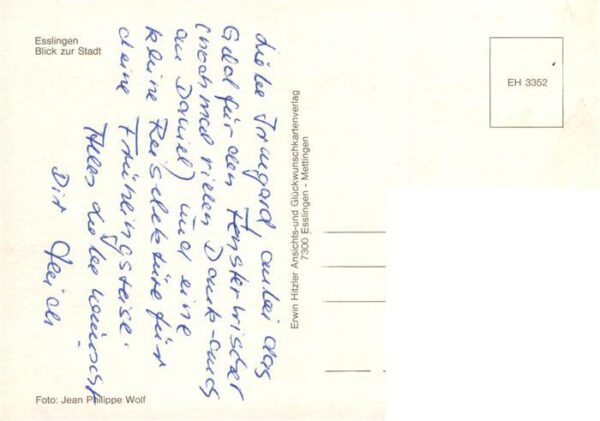 Esslingen
Blick zur Stadt
Liebe Irmgard anbei das
Geld für den Fensterwischer
(nochmal vielen Dank-auch
an Daniel) und eine
kleine Reiselektüre für
deine Frühlingsreise.
Alles Liebe wünscht
Dir
Erwin Hitzler Ansichts-und Glückwunschkartenverlag
7300 Esslingen - Mettingen
EH 3352
Foto: Jean Philippe Wolf